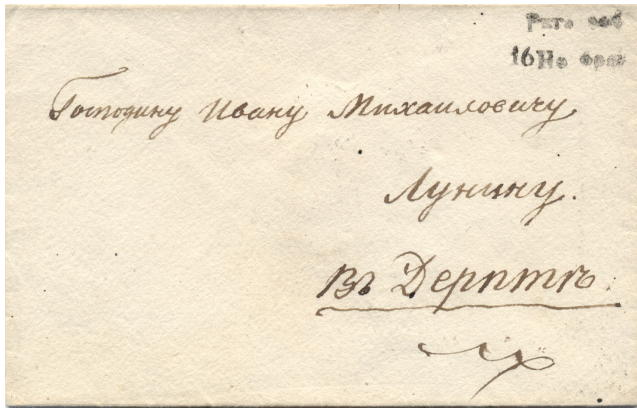 16
Господину Ивану Михаиловичу
Лунину.
Въ Дерптъ.